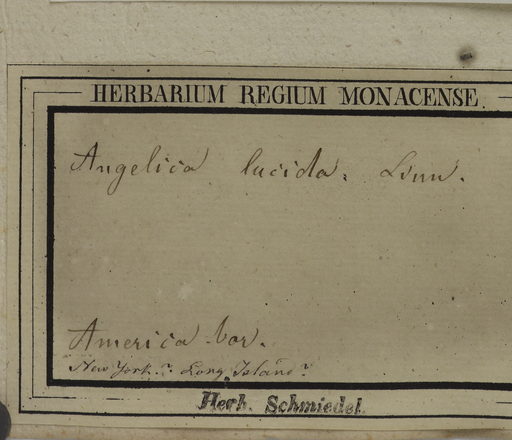 HERBARIUM REGIUM MONACENSE
Angelica lucida. Linn.
America bor.
New York? Long Island?
Herb. Schmiedel.